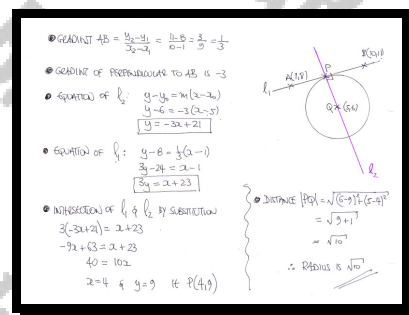 • GRADIENT AB = y₂-y₁/x₂-x₁ = 11-8/10-1 = 3/9 = 1/3
• GRADIENT OF PERPENDICULAR TO AB IS -3
• EQUATION OF l₂: y-y₀ = m(x-x₀)
y-6 = -3(x-5)
y = -3x+21
• EQUATION OF l₁: y-8 = 1/3(x-1)
3y-24 = x-1
3y = x+23
• INTERSECTION OF l₁ & l₂ BY SUBSTITUTION
3(-3x+21) = x+23
-9x+63 = x+23
40 = 10x
x=4 & y=9 IE P(4,9)
A(1,8)
P
B(10,11)
l₁
Q
(5,6)
l₂
• DISTANCE |PQ| = √(6-9)²+(5-4)²
= √9+1
= √10
∴ RADIUS IS √10